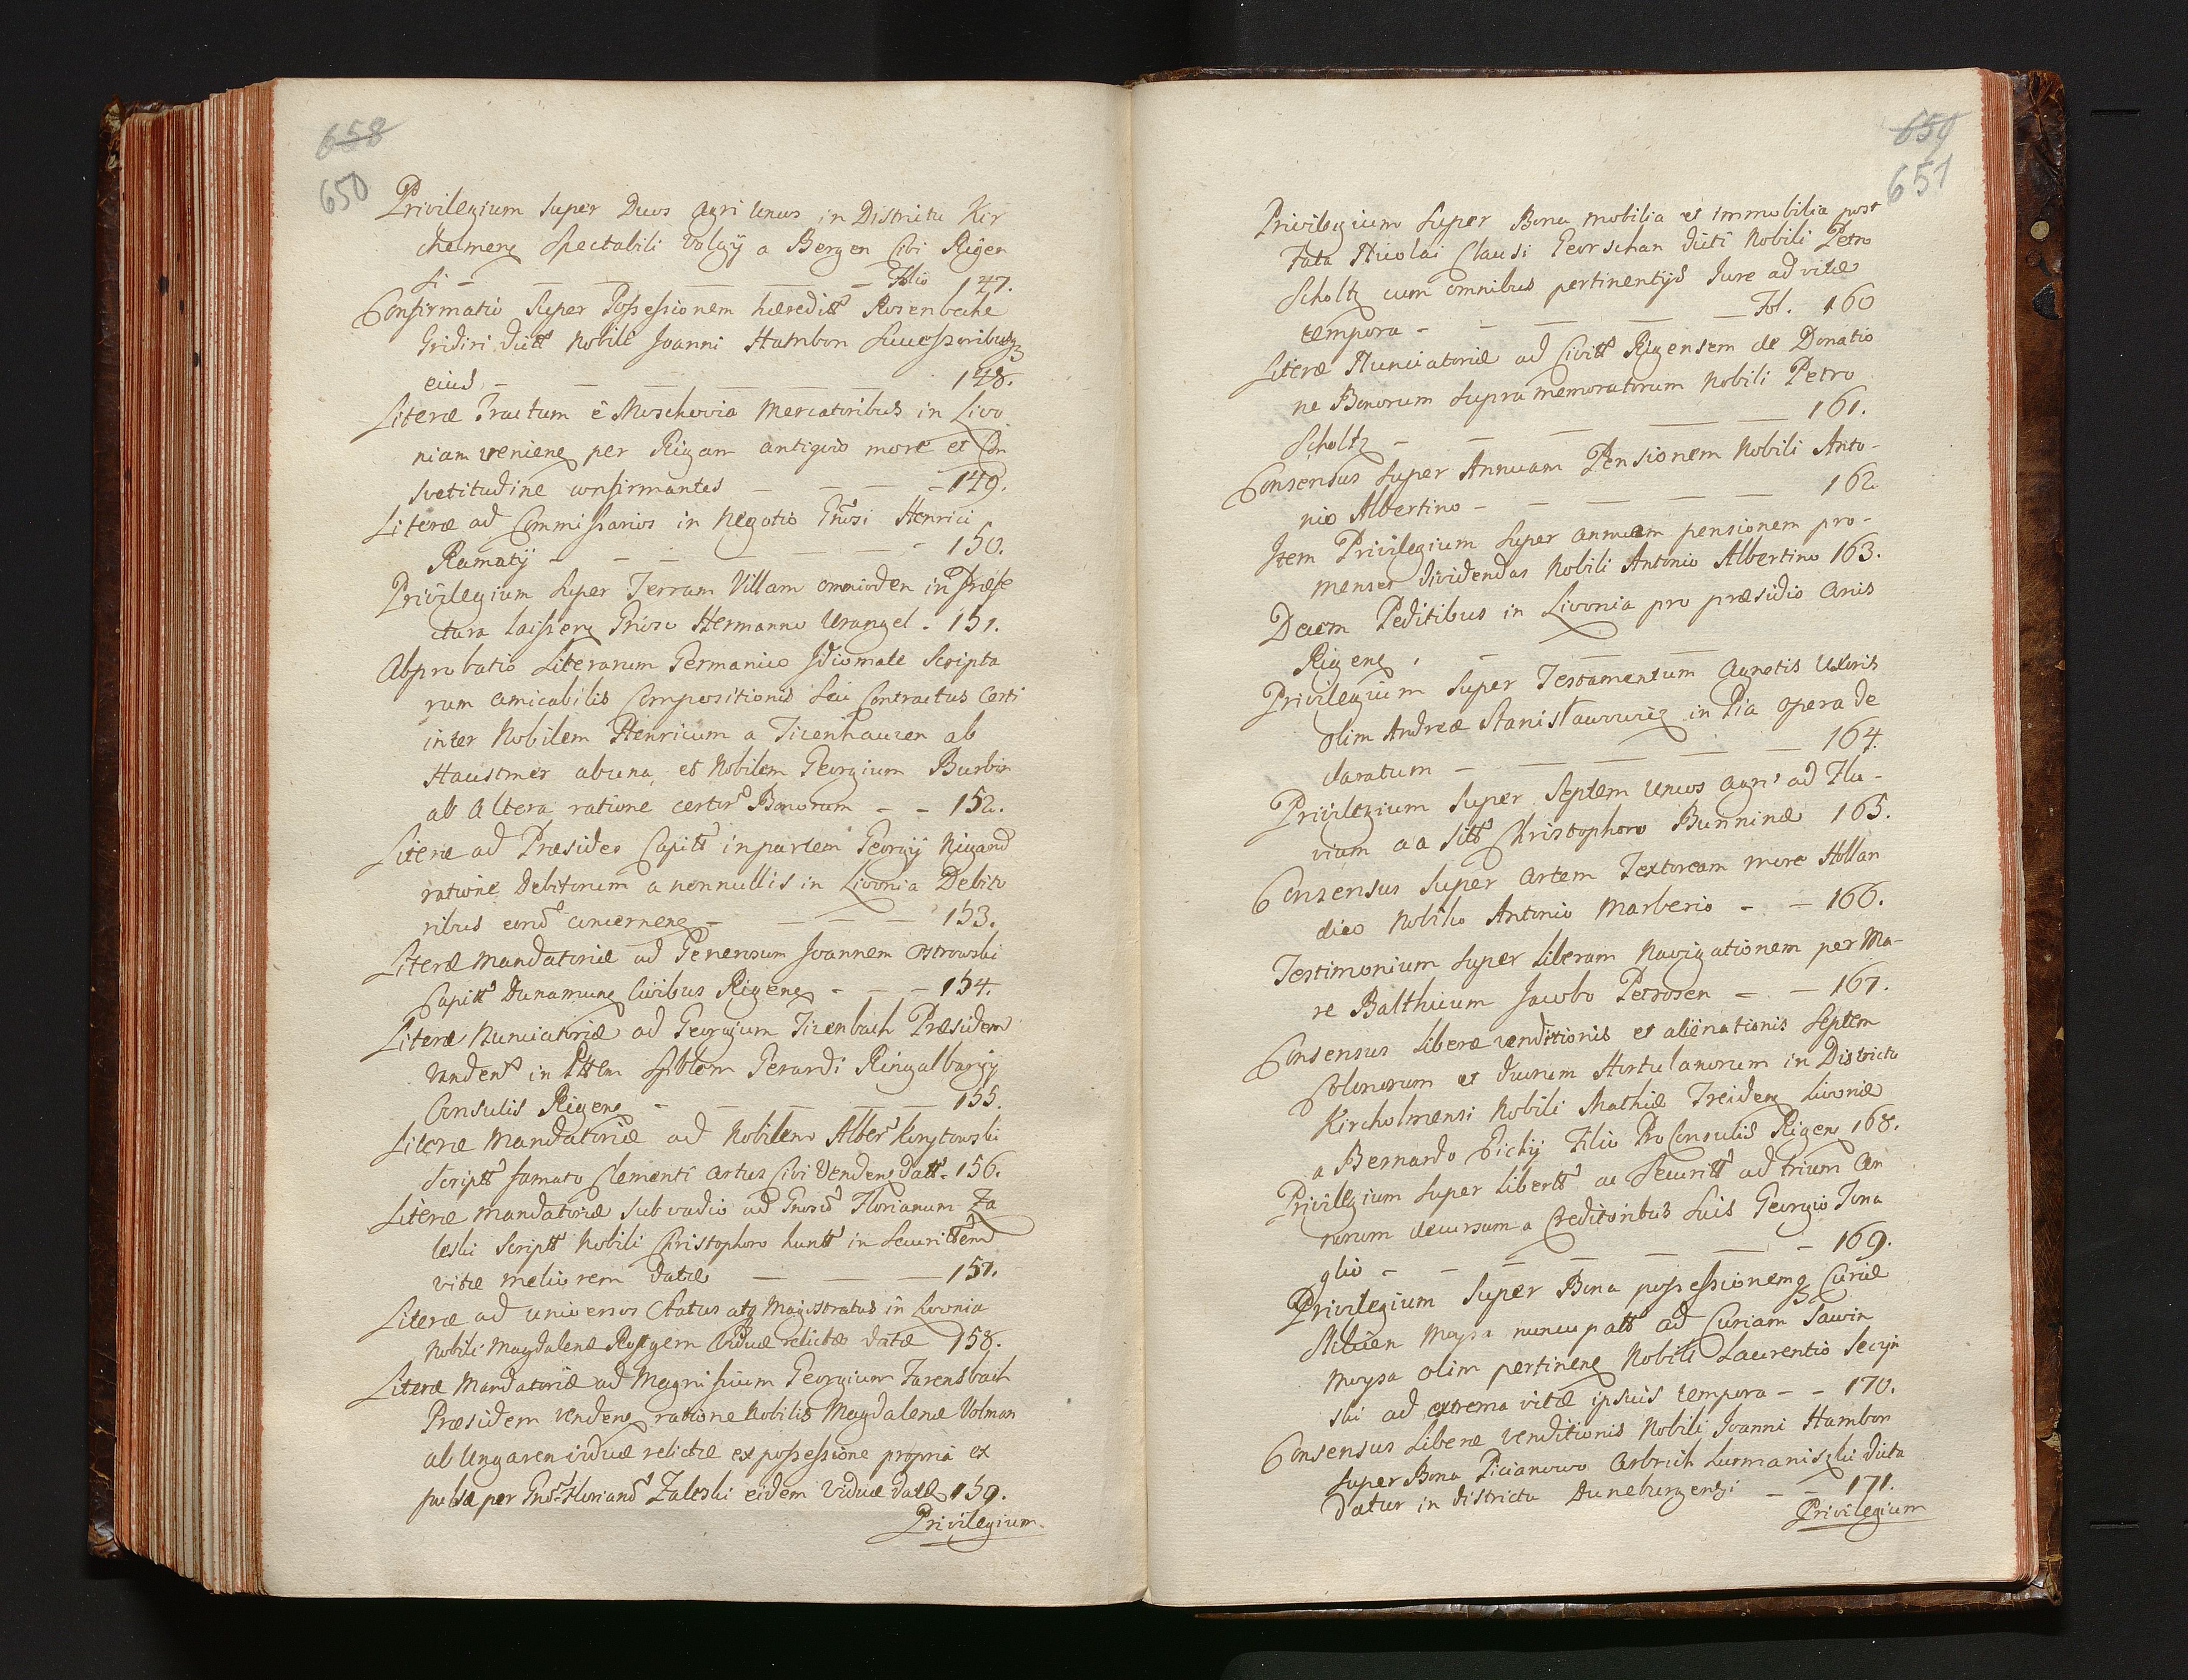 658
650
Privilegium super Duos agri Uncos in Districtu Kir
chelmens Spectabili Volgÿ a Bergen Civi Rigen
si - - - - - - Folio 147.
Confirmatio Super Possessionem hæredit Rosenbeche
Gridiri dict Nobili Joanni Hambon Successoribusqz
eius - - - - - - 148.
Literæ Tractum è Moschovia Mercatoribus in Livo
niam veniens per Rigam antiquo more et Con
svetitudine confirmantes - - - - 149.
Literæ ad Commissarios in Negotio Gnosi Henrici
Ramatÿ - - - - - - 150.
Privilegium Super Terram Villam in Præfe
ctura laissens Gnoso Hermanno Urangel - 151.
Abprobatio Literarum Germanico Idiomate Scripta
rum amicabilis Compositionis Seu Contractus Certi
inter Nobilem Henricum a Tizenhauzen ab
Haustmer ab una, et Nobilem Georgium Burbin
ab Altera ratione certor Bonorum - - 152.
Literæ ad Præsides Capit in partem Georgÿ Nigand
ratione Debitorum a nonnullis in Livonia Debito
ribus eord concernens - - - - 153.
Literæ Mandatoriæ ad Generosum Joannem Ostrowski
Capitt Dunamuns Civibus Rigens - - - 154.
Literæ Nunciatoriæ ad Georgium Tizenbach Præsidem
Venden in Spblem Gerardi Ringalbargÿ
Consulis Rigens - - - - - 155.
Literæ Mandatoriæ ad Nobilem Alber Korytowski
Script famato Clementi Artus Civi Vendens datt - 156.
Literæ Mandatoriæ sub vadio ad Gnosu Florianum Za
leski Script Nobili Christophoro hunt in Securittem
vitæ meliorem datæ - - - 157.
Literæ ad universos Status atq Magistratus in Livonia
Nobili Magdalenæ Viduæ relictæ datæ 158.
Literæ Mandatoriæ ad Magnificum Georgium Farensbach
Præsidem Vendens ratione Nobilis Magdalenæ Volman
ab Ungaren viduæ relictæ ex possessione propria ex
pulsæ per Gnos Floriand Zaleski eidem Viduæ datæ 159.
Privilegium.
659
651
Privilegium Super Bona mobilia et immobilia post
Fata Nicolai Clausi Georschan dicti Nobili Petro
Scholtz cum omnibus pertinentÿs Jure ad vitæ
tempora - - - - - - Fol. 160
Literæ Nunciatoriæ ad Civitt Rigensem de Donatio
ne Bonorum Supra memoratorum Nobili Petro
Scholtz - - - - - 161.
Consensus Super Annuam Pensionem Nobili Anto-
nio Albertino - - - - - 162
Item Privilegium Super annuam pensionem pro-
menses dividendas Nobili Antonio Albertino 163.
Decem Peditibus in Livonia pro præsidio Arcis
Rigens. - - -
Privilegium Super Testamentum Agnetis Uxoris
olim Andreæ Stanisławowicz in Pia opera de
claratum - - - - - 164.
Privilegium Super Septem Uncos Agri ad Flu-
vium aa sitt Christophoro Bunninæ 165.
Consensus Super Artem Textoream more Hollan
dico Nobilio Antonio Marberio - - 166.
Testimonium Super Liberam Navigationem per Ma-
re Balthicum Jacobo Petrosen - - 167.
Consensus Liberæ venditionis et alienationis Septem
Colonorum et duorum Hortulanorum in Districtu
Kircholmensi Nobili Mathiæ Treidens Livoniæ
a Bernardo Filio Pro Consulis Rigens 168.
Privilegium Super Libertt ac Securitt ad trium An
norum decursum a Creditoribus Suis Georgio Jona
glio - - - - - - 169.
Privilegium Super Bona possessionemq Curiæ
Miluen Moysa nuncupatt ad Curiam Sawin
Moysa olim pertinens Nobili Laurentio Secyn
ski ad extrema vitæ ipsius tempora - - 170.
Consensus Liberæ venditionis Nobili Joanni Hambon
super Bona Picianowo Arbrich Lurmaniszki dicta
datur in districtu Duneburgensi - - 171.
Privilegium